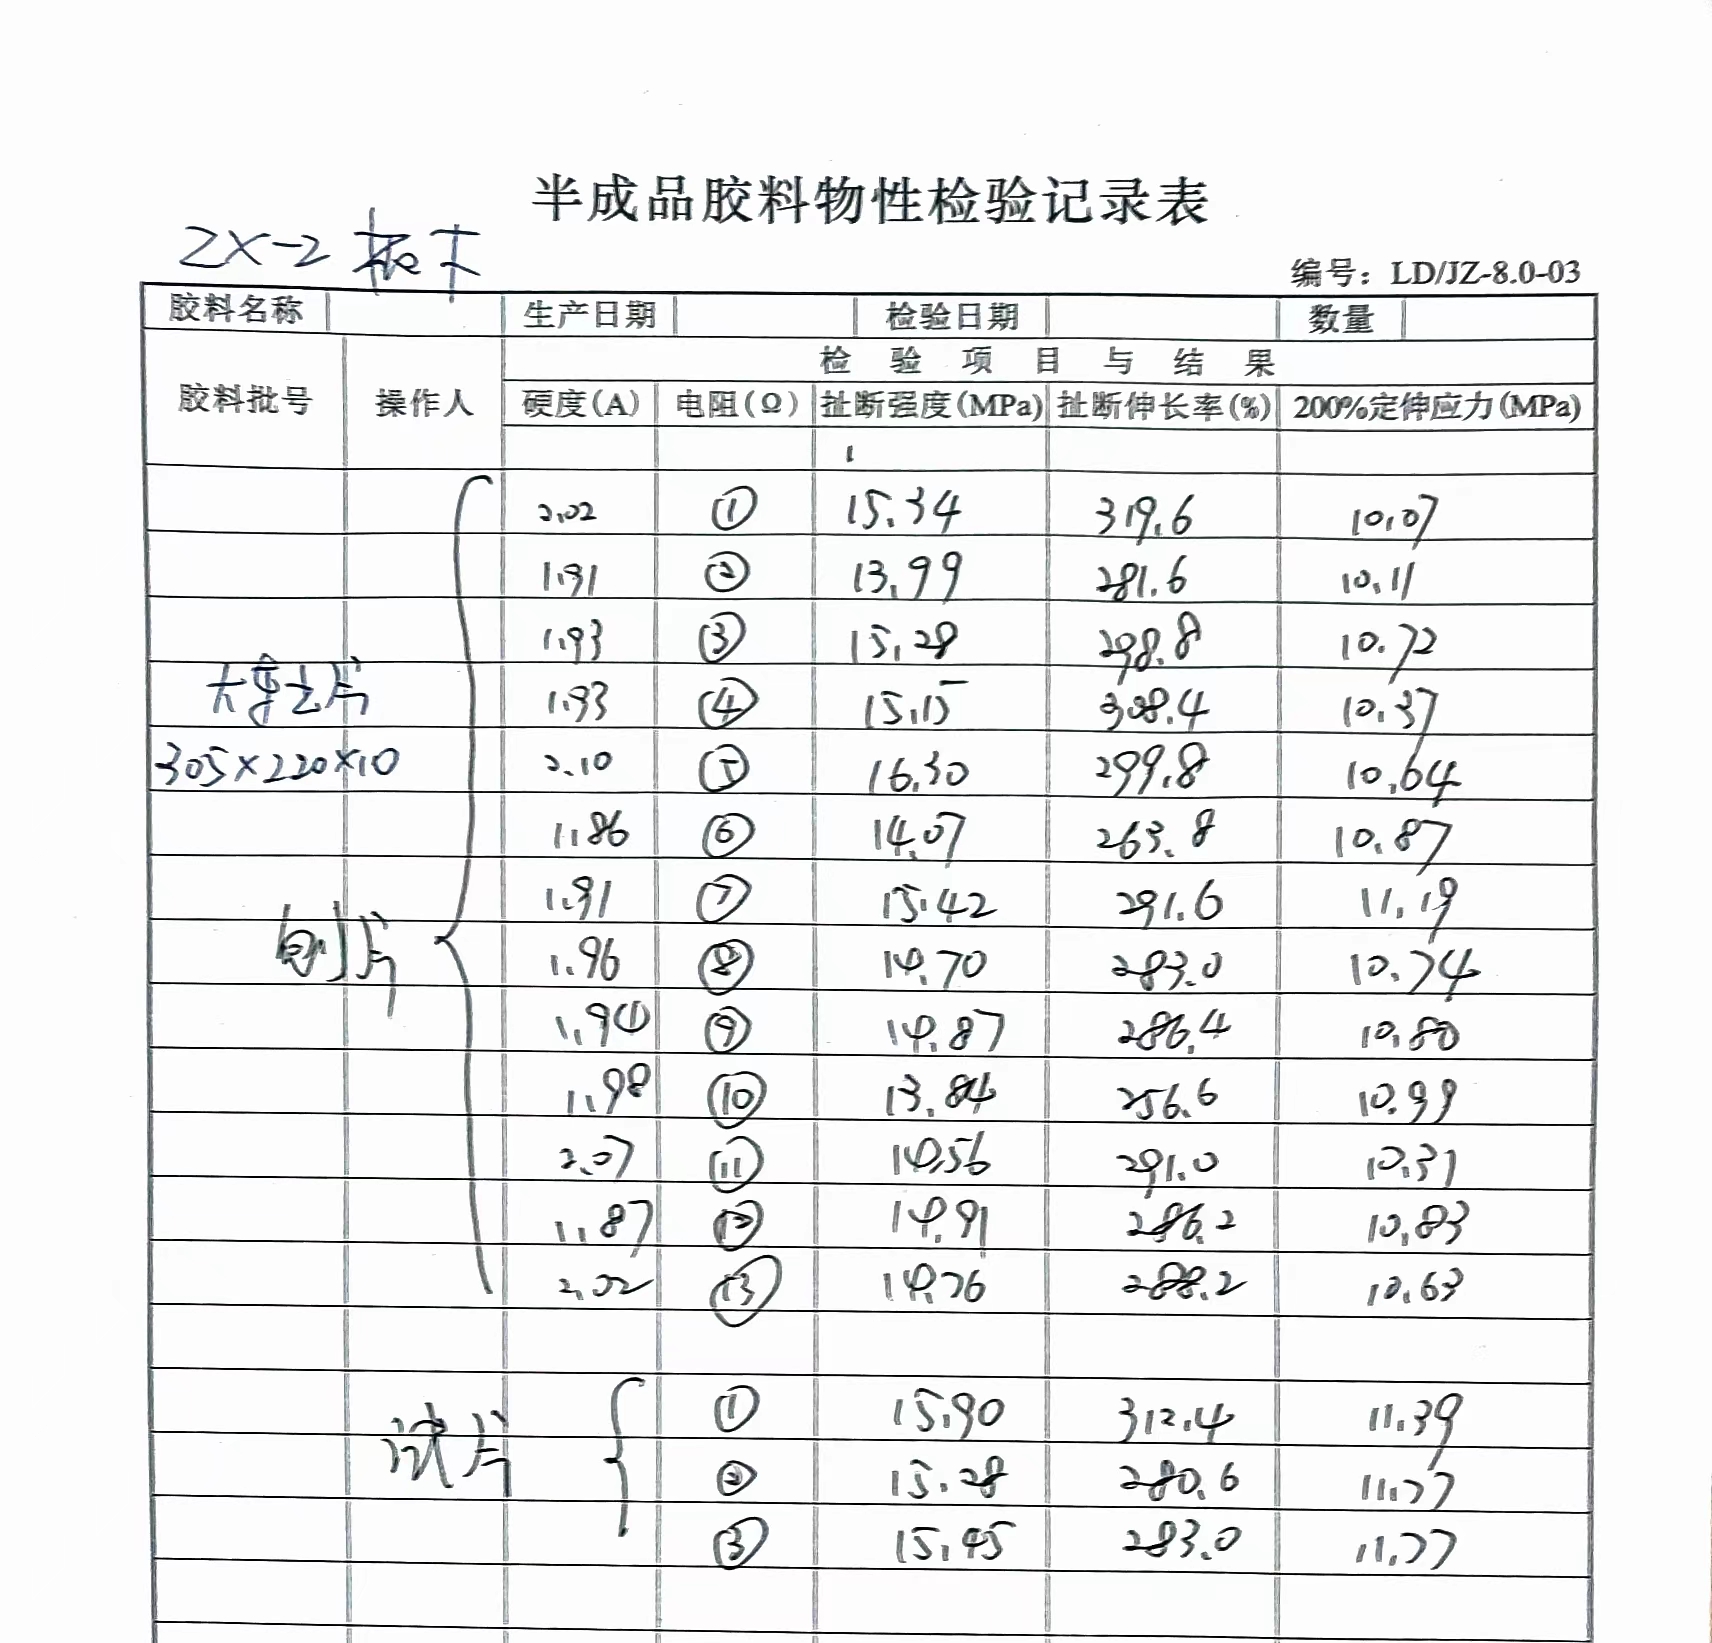 半成品胶料物性检验记录表
ZX-2 板下
编号：LD/JZ-8.0-03
胶料名称 生产日期 检验日期 数量
检验项目与结果
胶料批号 操作人 硬度(A) 电阻(Ω) 扯断强度(MPa) 扯断伸长率(%) 200%定伸应力(MPa)
2.02 ① 15.34 319.6 10.07
1.91 ② 13.99 281.6 10.11
1.93 ③ 15.28 298.8 10.72
片 1.93 ④ 15.15 308.4 10.37
305×220×10 2.10 ⑤ 16.30 299.8 10.64
1.86 ⑥ 14.07 263.8 10.87
1.91 ⑦ 15.42 291.6 11.19
刨片 1.96 ⑧ 14.70 283.0 10.74
1.94 ⑨ 14.87 286.4 10.80
1.98 ⑩ 13.84 256.6 10.99
2.07 ⑪ 14.56 291.0 10.31
1.87 ⑫ 14.91 286.2 10.83
2.02 ⑬ 14.76 288.2 10.63
① 15.90 312.4 11.39
试片 ② 15.28 280.6 11.77
③ 15.45 283.0 11.77